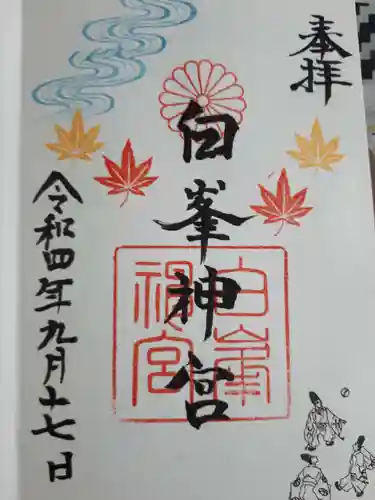 奉拝
白峯神宮
白峯
神宮
令和四年九月十七日